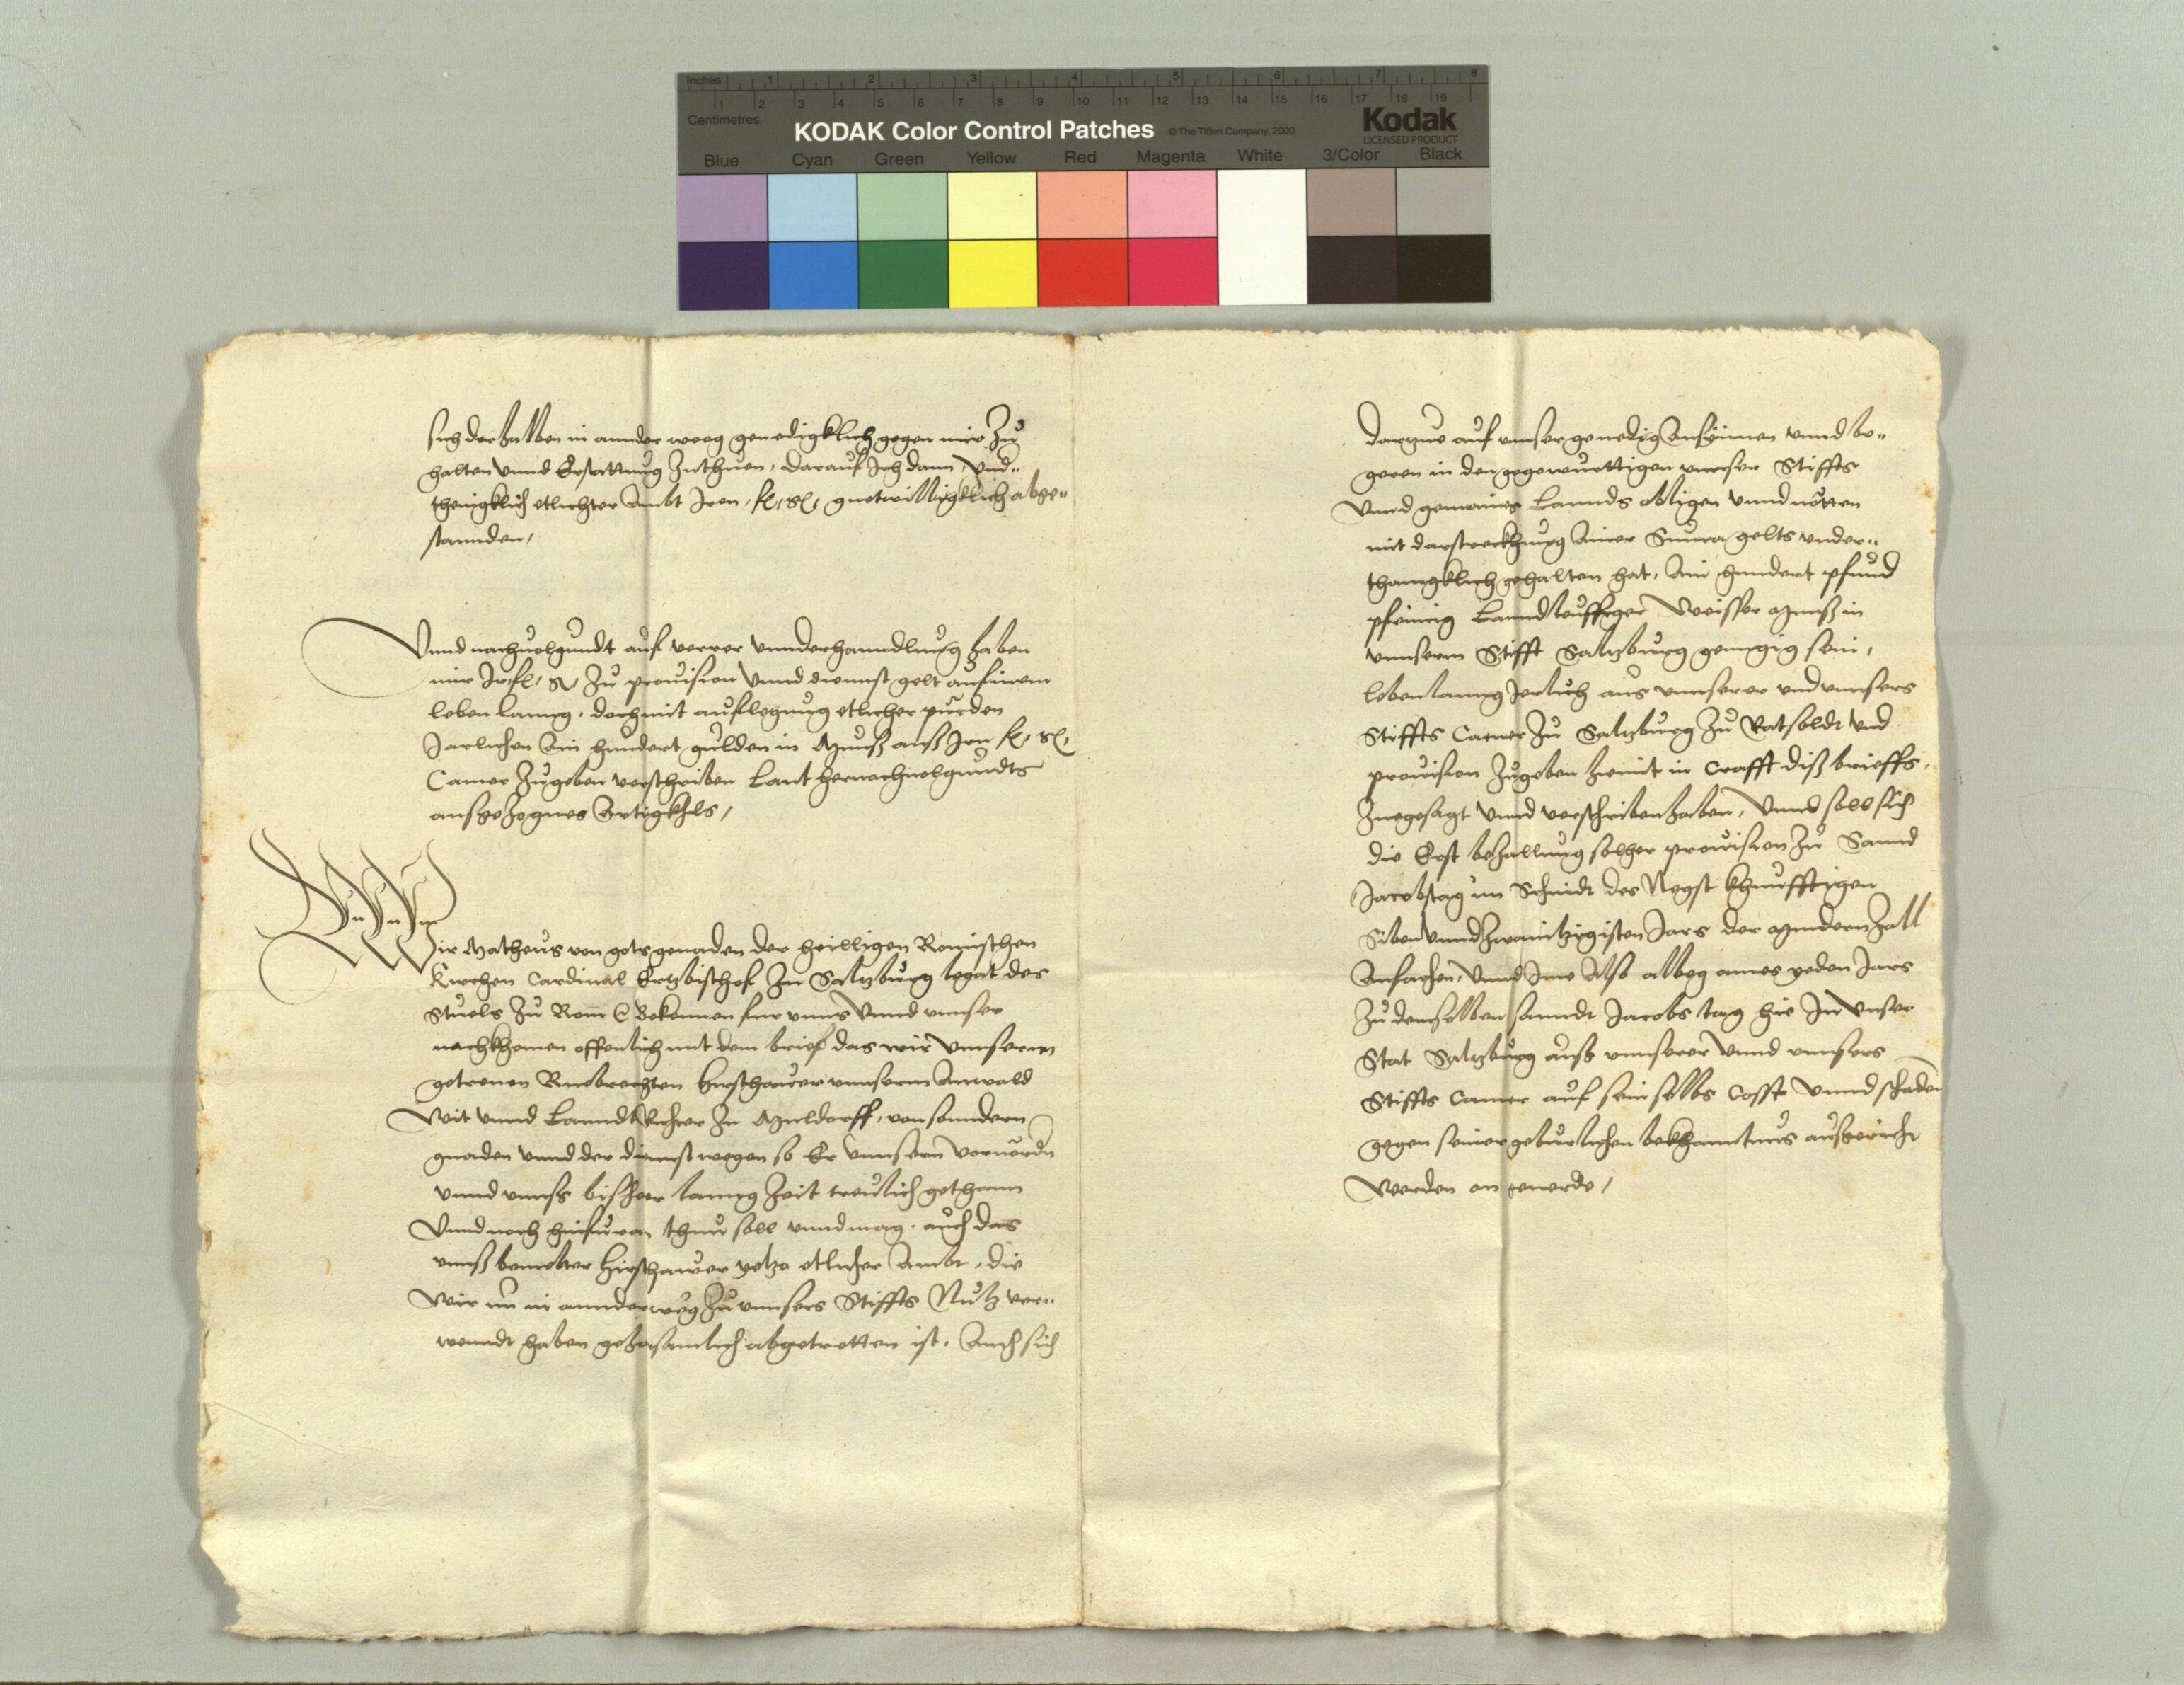 Inches 1 2 3 4 5 6 7 8
1 2 3 4 5 6 7 8 9 10 11 12 13 14 15 16 17 18 19
Centimetres
KODAK Color Control Patches © The Tiffen Company, 2000 Kodak
LICENSED PRODUCT
Blue Cyan Green Yellow Red Magenta White 3/Color Black
sich derhalben in annder weeg genedigklich gegen mir Zu
halten vnnd Erstattung Zuthuen, darauf Ich dann, Vnd„
thenigklich etlichter Ambt Iren, f, g, guetwilligklich abge„
stannden,
Vnnd nachuolgundt auf verrer vnnderhanndlung haben
mir Ir f, g, Zu prouision Vnnd diennst gelt auf mein
leben lanng, doch mit auflegung etlicher purden
Jarlichen Ain hundert gulden in Munß auß Irn f, g,
Camer Zugeben verschriben Laut hernachuolgundts
außgezognes Artigkhls,
Wir Matheus von gots genaden der heilligen Romischen
Kirchen Cardinal Ertzbischof Zu Saltzburg legat des
Stuels Zu Rom Bekennen fur vnns Vnnd vnnser
nachkhomen offenlich mit dem brief das wir Vnnserm
getreuen Ruebrechten Hirschawer vnnserm Anwald
Vnnd Lanndt Richter Zu Muldorff, von sonndern
gnaden vnnd der diennst wegen so Er Vnnsern Voruordn
vnnd vnnß bisheer lanng Zeit treulich gethann
Vnnd noch hinfuran thun soll vnnd mag, auch das
vnnß bemelter Hirschawer yetzo etlicher Ambt, die
Wir nu in annder weg Zu vnnsers Stiffts Nutz ver„
wenndt haben gehorsamlich abgetretten ist, Auch sich
dartzue auf vnnser genedig Ansynnen vnnd be„
geren in den gegenwurttigen vnnser Stiffts
Vnnd gemaines Lannds obligen Vnnd nötten
mit darstreckhung Ainer Suma gelts vnder„
thanigklich gehalten hat, Ain hundert pfund
pfening Lanndleuffiger Weisser Munß in
vnnserm Stifft Saltzburg genngig sein,
lebenlanng Jerlich aus vnnserer vnd vnnsers
Stiffts Camer Zu Saltzburg Zu Ratsoldt Vnd
prouision Zugeben hiemit in Crafft diß brieffs,
Zuegesagt Vnnd verschriben haben, Vnnd soll sich
die Erst betzallung solher prouision Zu Sannd
Jacobstag im Schnidt des Negst khunfftigen
Siben Vnnd Zwaintzigisten Jars der myndern Zall
Anfachen, Vnnd Ime Also albeg aines yeden Jars
Zu demselben sanndt Jacobs tag hie In Vnser
Stat Saltzburg auß vnnserer Vnnd vnnsers
Stiffts Camer auf sein selbs Cosst Vnnd schaden
gegen seiner geburlichen bekhanntnus außgericht
Werden on geuerde,